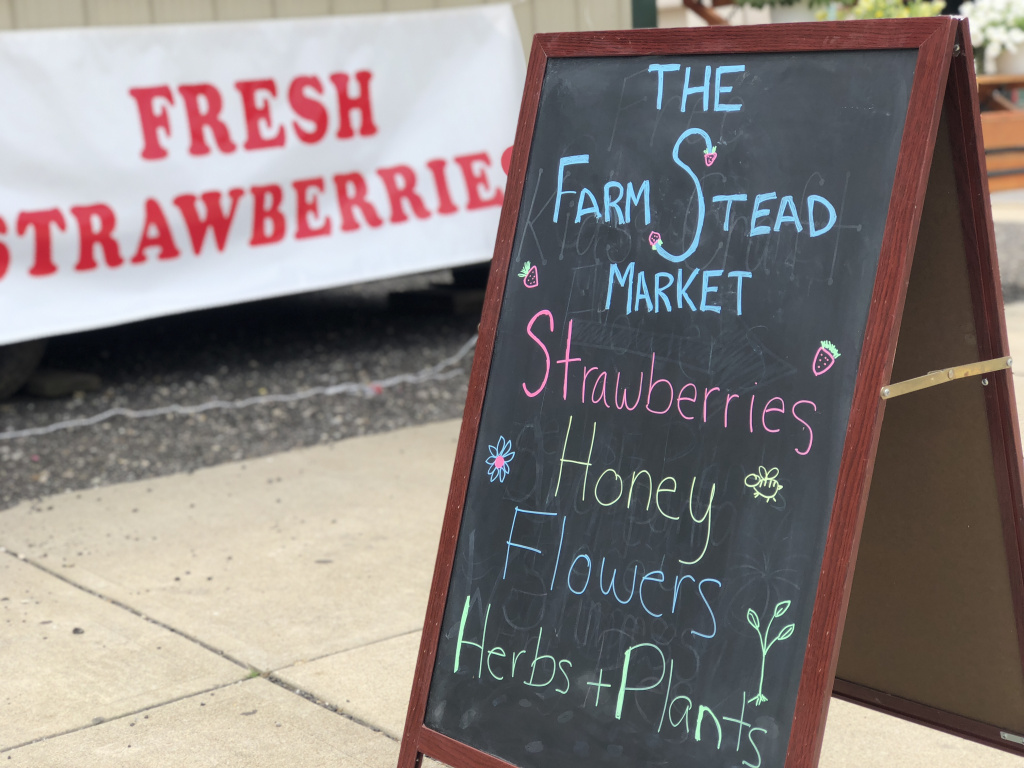 FRESH
STRAWBERRIES
THE
FARM STEAD
MARKET
Strawberries
Honey
Flowers
Herbs + Plants